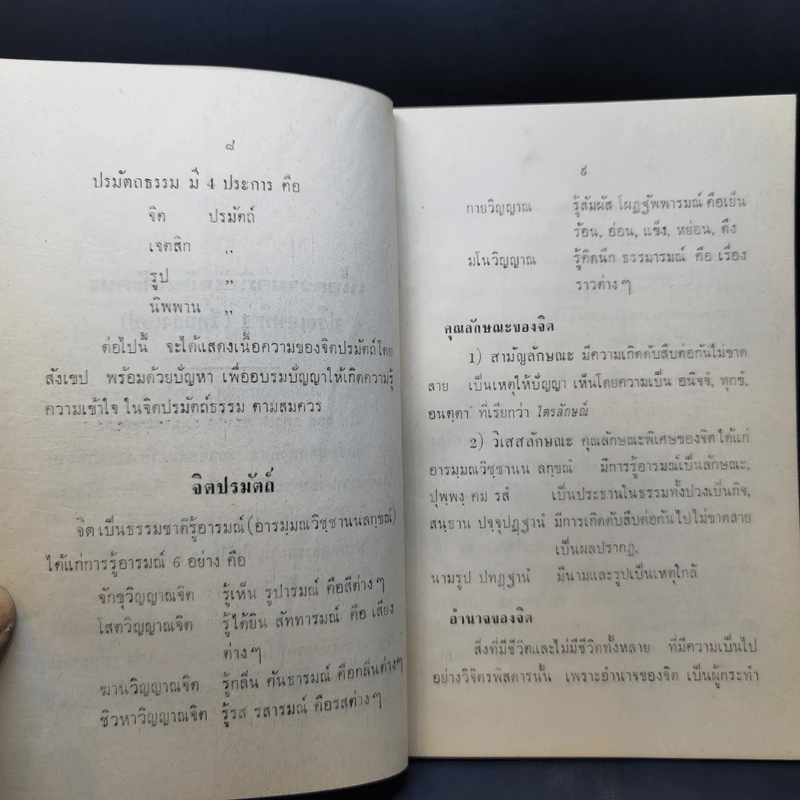 ๘
ปรมัตถธรรม มี 4 ประการ คือ
จิต ปรมัตถ์
เจตสิก ,,
รูป ,,
นิพพาน ,,
ต่อไปนี้ จะได้แสดงเนื้อความของจิตปรมัตถ์โดย
สังเขป พร้อมด้วยปัญหา เพื่ออบรมปัญญาให้เกิดความรู้
ความเข้าใจ ในจิตปรมัตถ์ธรรม ตามสมควร
จิตปรมัตถ์
จิตเป็นธรรมชาติรู้อารมณ์ (อารมฺมณวิชฺชานนลกฺขณํ)
ได้แก่การรู้อารมณ์ 6 อย่าง คือ
จักขุวิญญาณจิต รู้เห็น รูปารมณ์ คือสีต่างๆ
โสตวิญญาณจิต รู้ได้ยิน สัททารมณ์ คือ เสียง
ต่างๆ
ฆานวิญญาณจิต รู้กลิ่น คันธารมณ์ คือกลิ่นต่างๆ
ชิวหาวิญญาณจิต รู้รส รสารมณ์ คือรสต่างๆ
๙
กายวิญญาณ รู้สัมผัส โผฏฐัพพารมณ์ คือเย็น
ร้อน, อ่อน, แข็ง, หย่อน, ตึง
มโนวิญญาณ รู้คิดนึก ธรรมารมณ์ คือ เรื่อง
ราวต่างๆ
คุณลักษณะของจิต
1) สามัญลักษณะ มีความเกิดดับสืบต่อกันไม่ขาด
สาย เป็นเหตุให้ปัญญา เห็นโดยความเป็น อนิจจํ, ทุกขํ,
อนตฺตา ที่เรียกว่า ไตรลักษณ์
2) วิเสสลักษณะ คุณลักษณะพิเศษของจิตได้แก่
อารมฺมณวิชฺชานน ลกฺขณํ มีการรู้อารมณ์เป็นลักษณะ,
ปุพฺพงฺ คม รสํ เป็นประธานในธรรมทั้งปวงเป็นกิจ,
สนฺธาน ปจฺจุปฏฺฐานํ มีการเกิดดับสืบต่อกันไปไม่ขาดสาย
เป็นผลปรากฏ,
นามรูป ปทฏฺฐานํ มีนามและรูปเป็นเหตุใกล้
อำนาจของจิต
สิ่งที่มีชีวิตและไม่มีชีวิตทั้งหลาย ที่มีความเป็นไป
อย่างวิจิตรพิสดารนั้น เพราะอำนาจของจิต เป็นผู้กระทำ